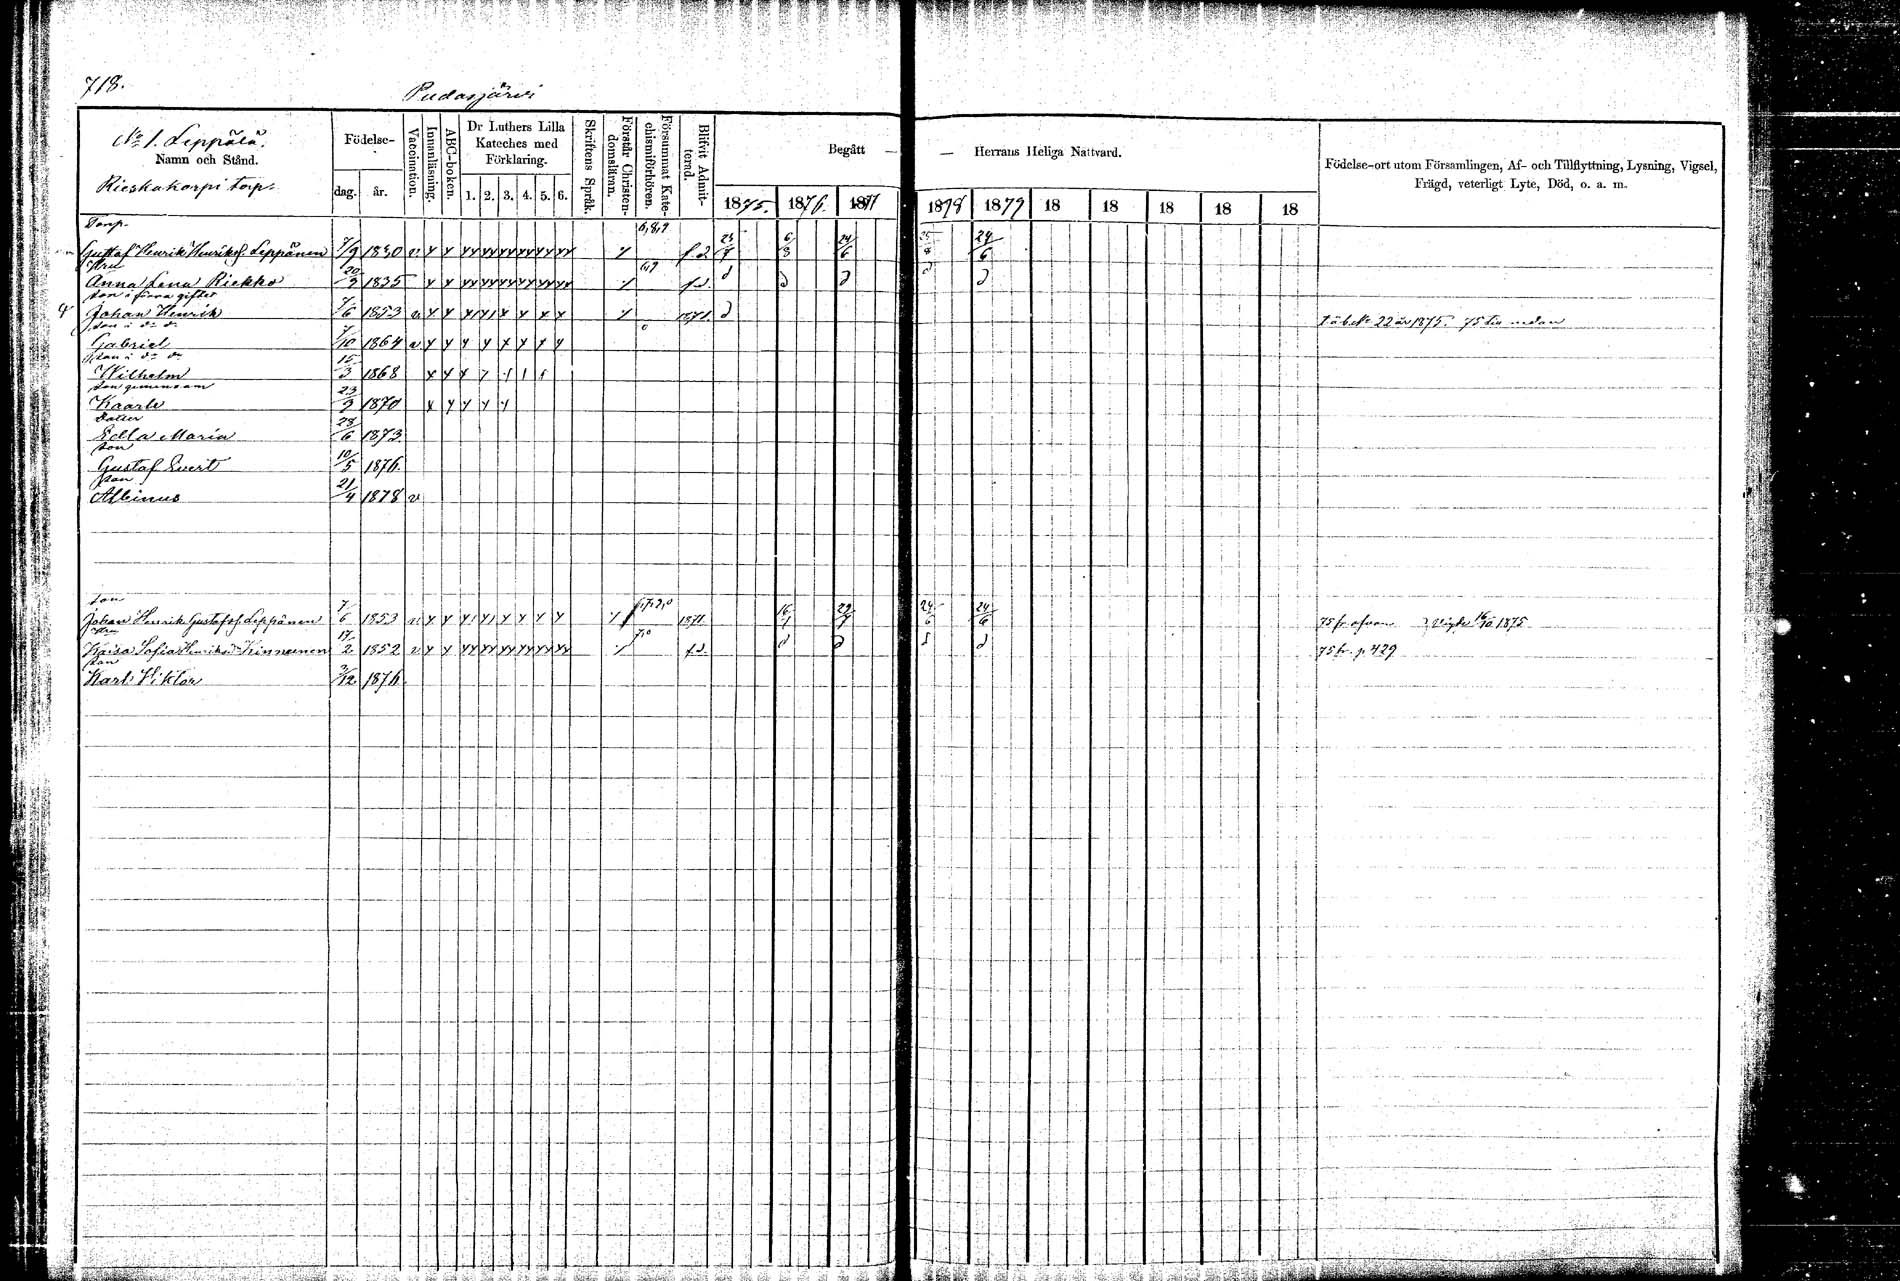 718.
Pudasjärvi
No 1. Leppälä.
Namn och Stånd.
Rieskakorpi torp.
Födelse-
dag. år.
Vaccination.
Innanläsning.
ABC-boken.
Dr Luthers Lilla Kateches med Förklaring.
1. 2. 3. 4. 5. 6.
Skriftens Språk.
Förstår Christendomsläran.
Försummat Katechismiförhören.
Blifvit Admitterad.
Begått — — Herrans Heliga Nattvard.
1875. 1876. 1877 1878 1879 18 18 18 18 18
Födelse-ort utom Församlingen, Af- och Tillflyttning, Lysning, Vigsel,
Frägd, veterligt Lyte, Död, o. a. m.
Torp.
Gustaf Henrik Henriks. Leppänen 7/9 1830 v
Hru
Anna Lena Riekko 20/9 1835
son i förra giftet
Johan Henrik 7/6 1853 v 1871. 22 år 1875. 75 tra nedan
son i do do
Gabriel 7/10 1864 v
son i do do
Wilhelm 15/3 1868
son gemensam
Kaarle 23/9 1870
Dotter
Edla Maria 28/6 1873
son
Gustaf Evert 10/5 1876.
son
Albinus 21/4 1878 v
son
Johan Henrik Gustafs. Leppänen 7/6 1853 v 1871. 16/1 24/6 24/6 75 fr. ofvan Vigde 16/10 1875
Hru
Kaisa Sofia Henriksd. Kinnunen 17/2 1852 v 75 fr. p. 429
son
Karl Viktor 3/12 1876.